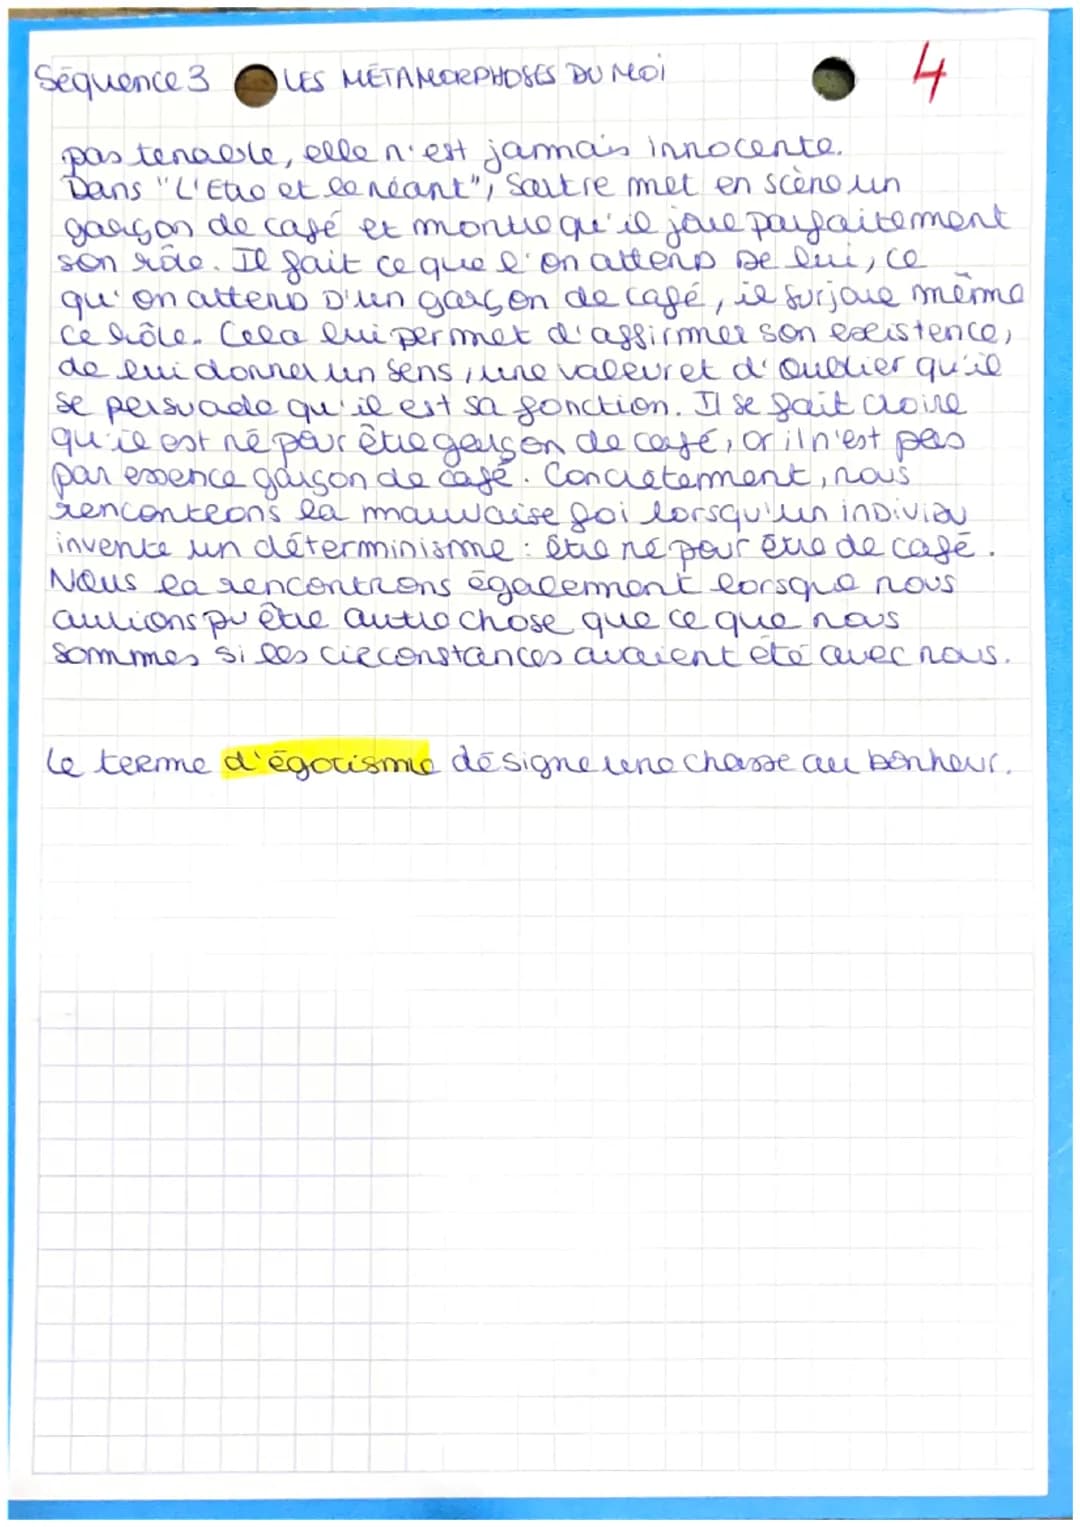 Séquence 3 LES MÉTAMORPHOSES DU MOI 4
pas tenable, elle n'est jamais innocente.
Dans "L'Etre et le néant", Sartre met en scène un
garçon de café et montre qu'il joue parfaitement
son rôle. Il fait ce que l'on attend de lui, ce
qu'on attend d'un garçon de café, il surjoue même
ce rôle. Cela lui permet d'affirmer son existence,
de lui donner un sens, une valeur et d'oublier qu'il
se persuade qu'il est sa fonction. Il se fait croire
qu'il est né pour être garçon de café, or il n'est pas
par essence garçon de café. Concrètement, nous
rencontrons la mauvaise foi lorsqu'un individu
invente un déterminisme : être né pour être de café.
Nous la rencontrons également lorsque nous
aurions pu être autre chose que ce que nous
sommes si les circonstances avaient été avec nous.
Le terme d'égotisme désigne une chasse au bonheur.